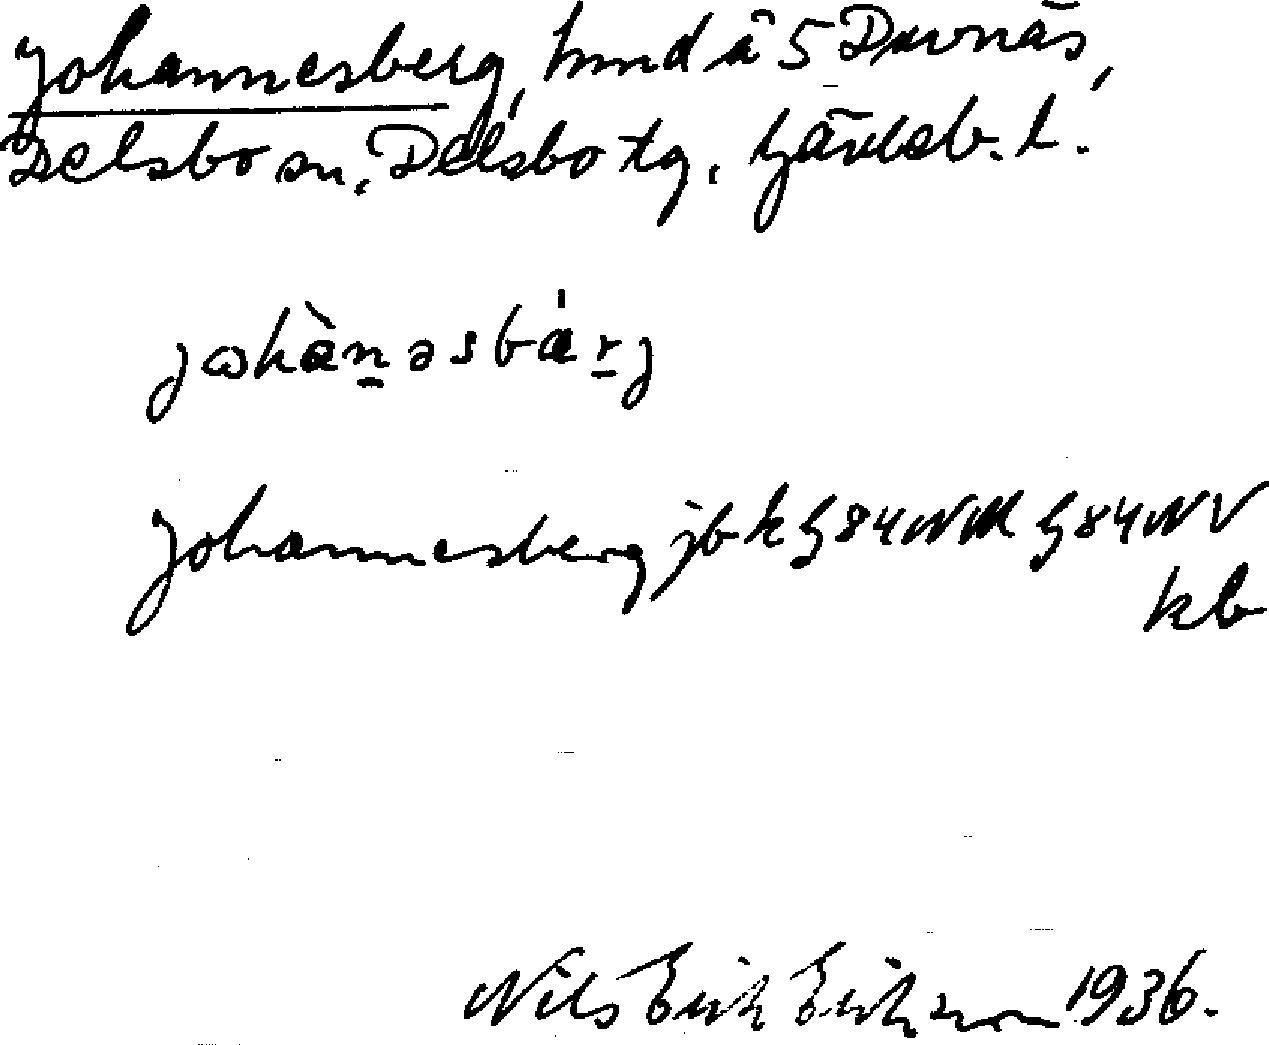 Johannesberg, hmd å 5 Duvnäs,
Delsbo sn, Delsbo tg, Gävleb. l.
johànəsbárj
Johannesberg jb k G84NM G84NV
kb
Nils Erik Eriksson 1936.